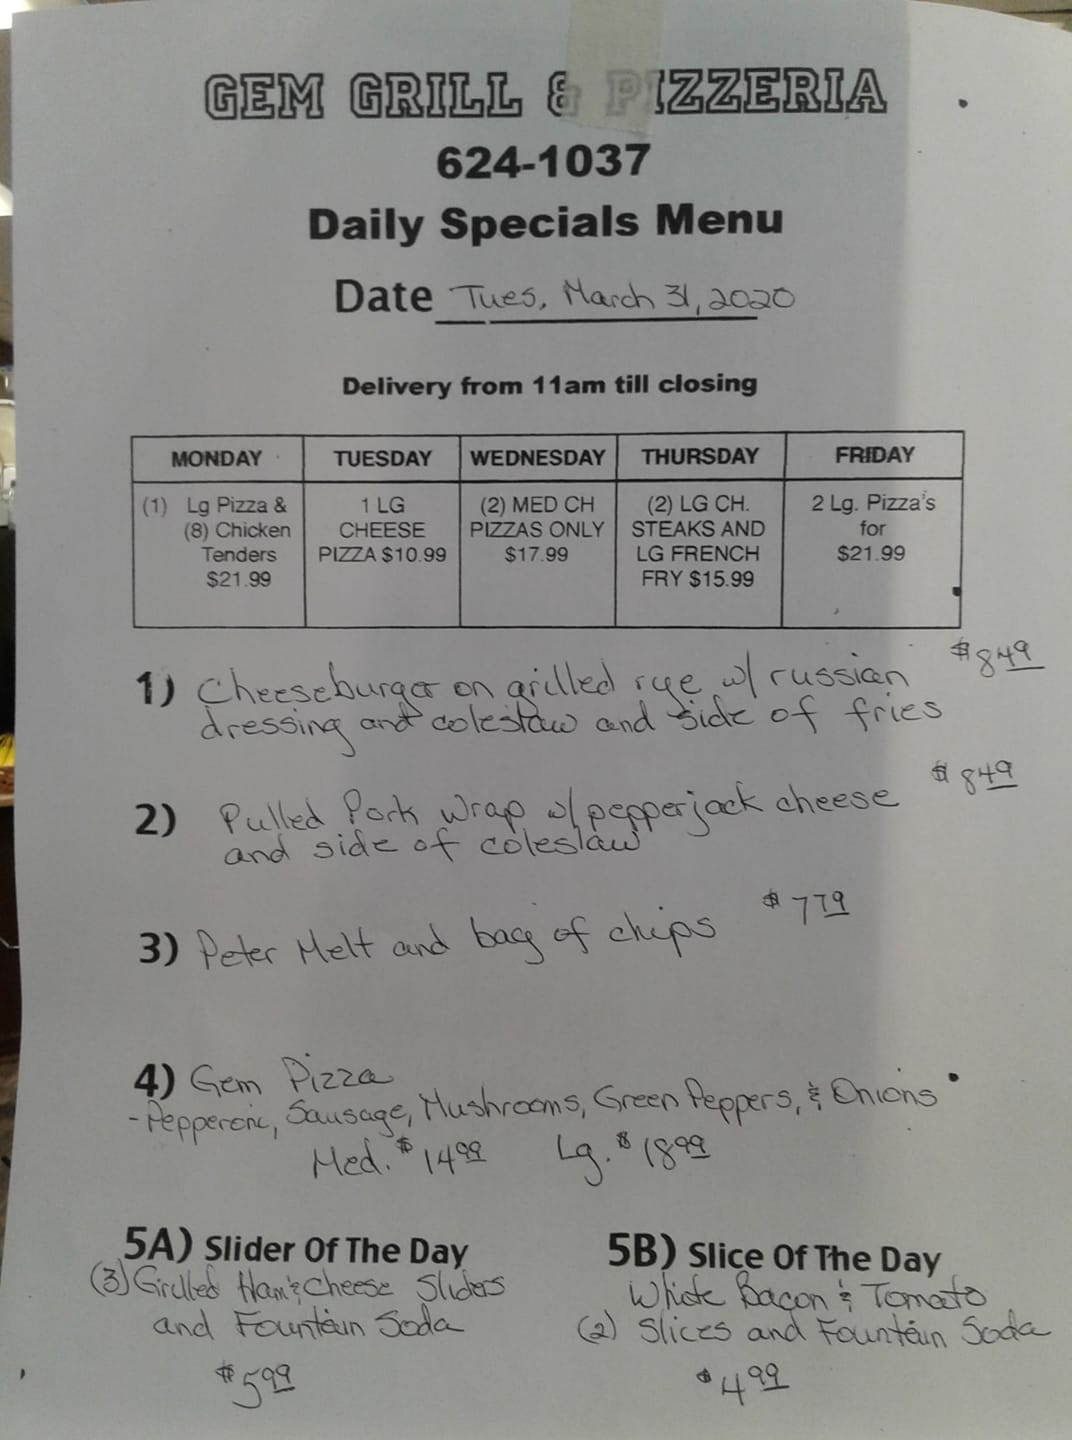 GEM GRILL & PIZZERIA
624-1037
Daily Specials Menu
Date Tues, March 31, 2020
Delivery from 11am till closing
MONDAY TUESDAY WEDNESDAY THURSDAY FRIDAY
(1) Lg Pizza &
(8) Chicken
Tenders
$21.99
1 LG
CHEESE
PIZZA $10.99
(2) MED CH
PIZZAS ONLY
$17.99
(2) LG CH.
STEAKS AND
LG FRENCH
FRY $15.99
2 Lg. Pizza's
for
$21.99
1) Cheeseburger on grilled rye w/ russian $8.49
dressing and coleslaw and side of fries
2) Pulled Pork Wrap w/pepperjack cheese $8.49
and side of coleslaw
3) Peter Melt and bag of chips $7.79
4) Gem Pizza
-Pepperoni, Sausage, Mushrooms, Green Peppers, & Onions
Med. $14.99 Lg. $18.99
5A) Slider Of The Day
(3) Grilled Ham & Cheese Sliders
and Fountain Soda
$5.99
5B) Slice Of The Day
White Bacon & Tomato
(2) Slices and Fountain Soda
$4.99